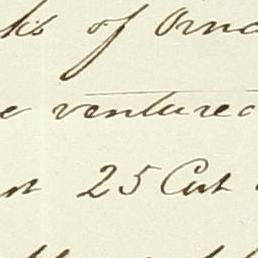 ks of Orna
e ventured
25 Cut